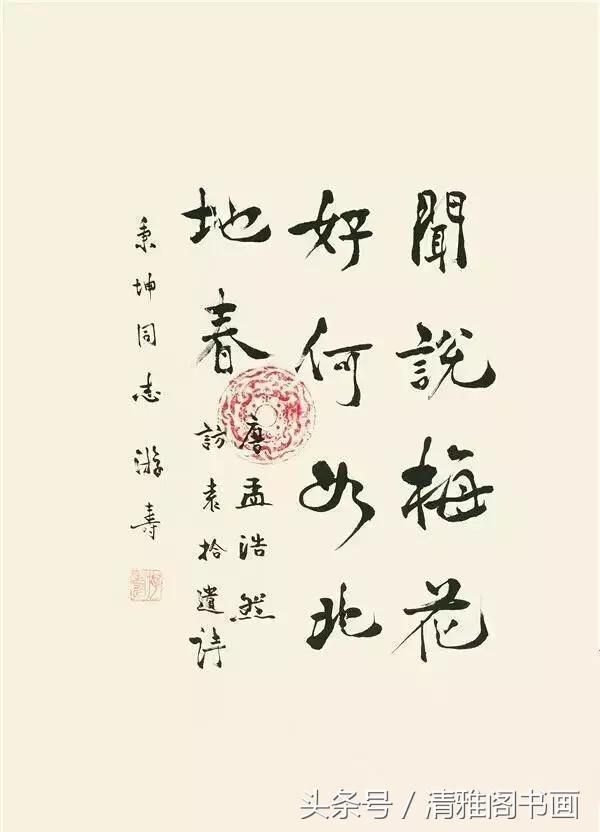 聞說梅花
好何如北
地春
唐孟浩然
訪袁拾遺詩
秉坤同志游壽
头条号／清雅阁书画